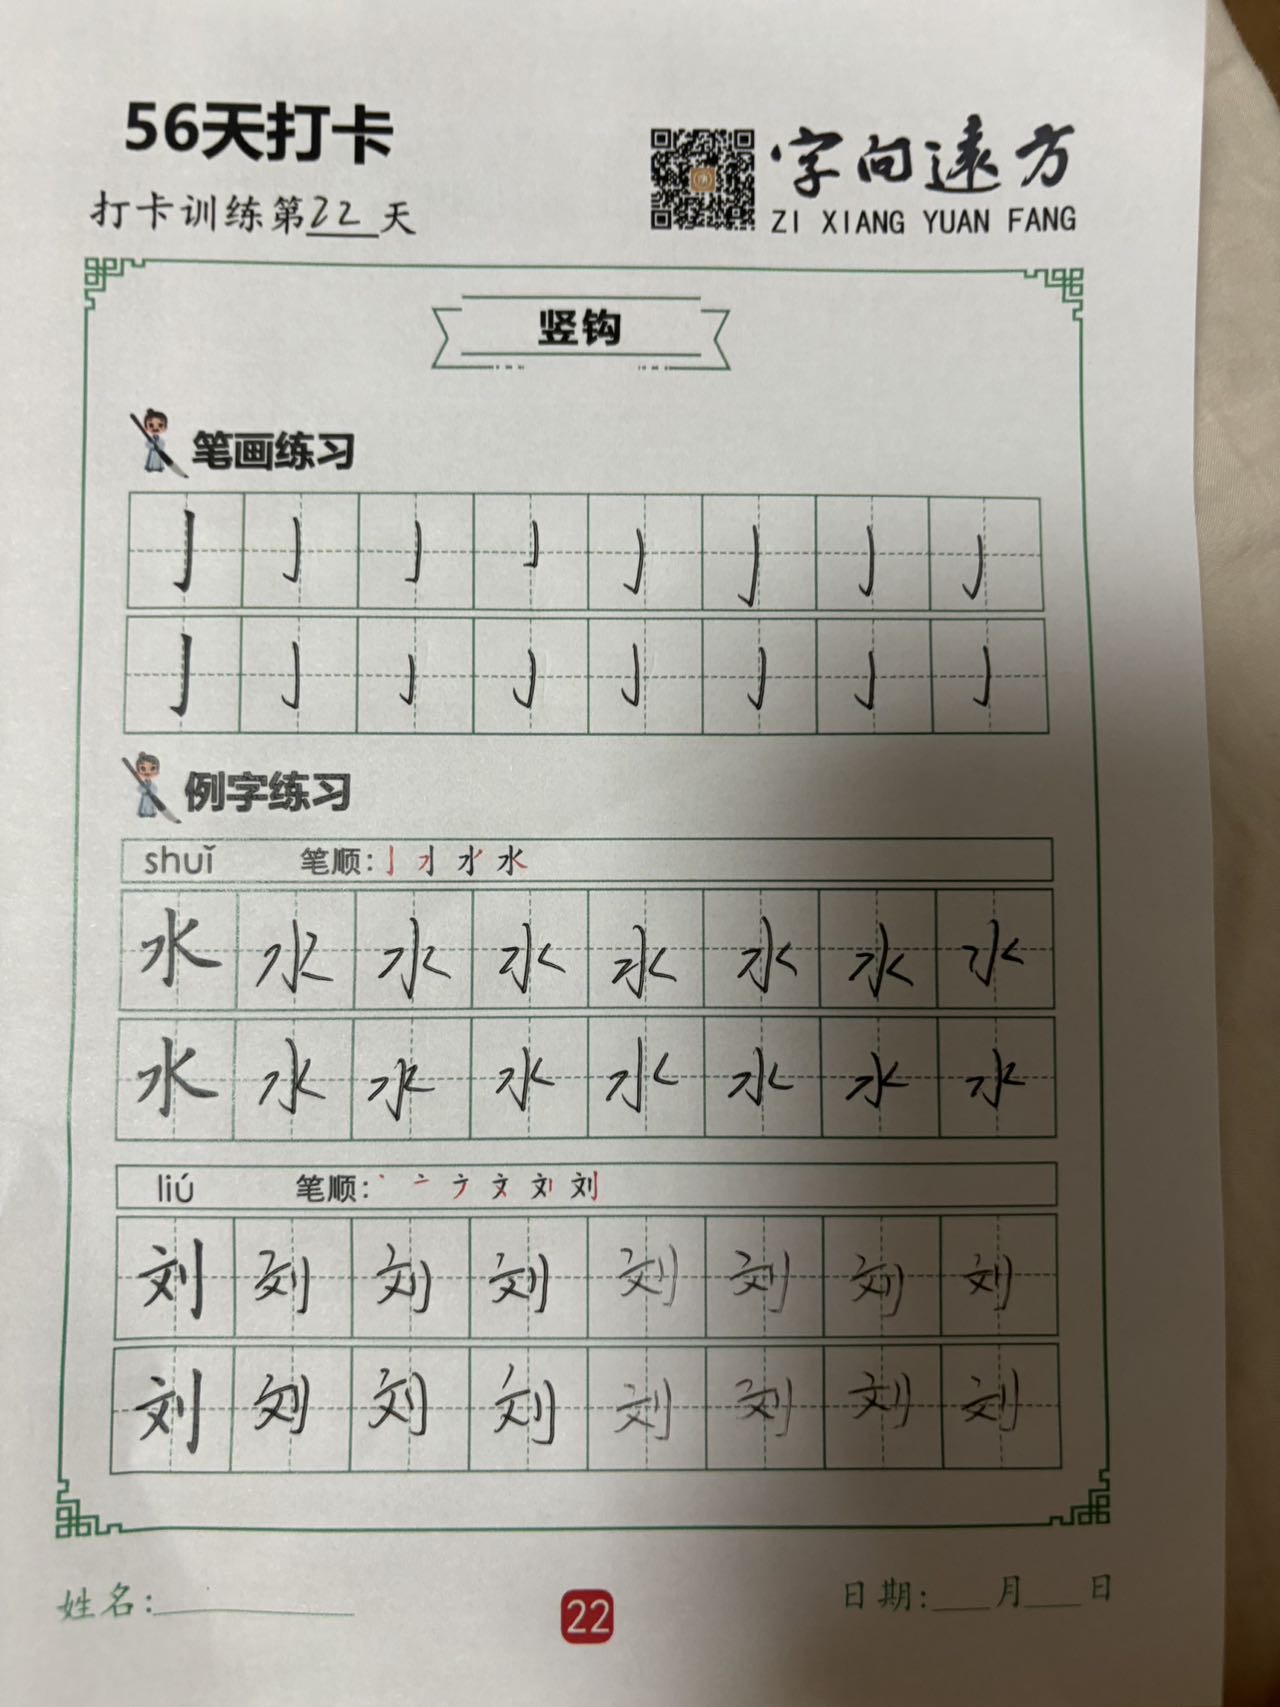 56天打卡
字向遠方
打卡训练第22天
ZI XIANG YUAN FANG
竖钩
笔画练习
亅亅亅亅亅亅亅亅
亅亅亅亅亅亅亅亅
例字练习
shuǐ 笔顺: 水
水水水水水水水水
水水水水水水水水
liú 笔顺: 刘
刘刘刘刘刘刘刘刘
刘刘刘刘刘刘刘刘
姓名:
22
日期: 月 日